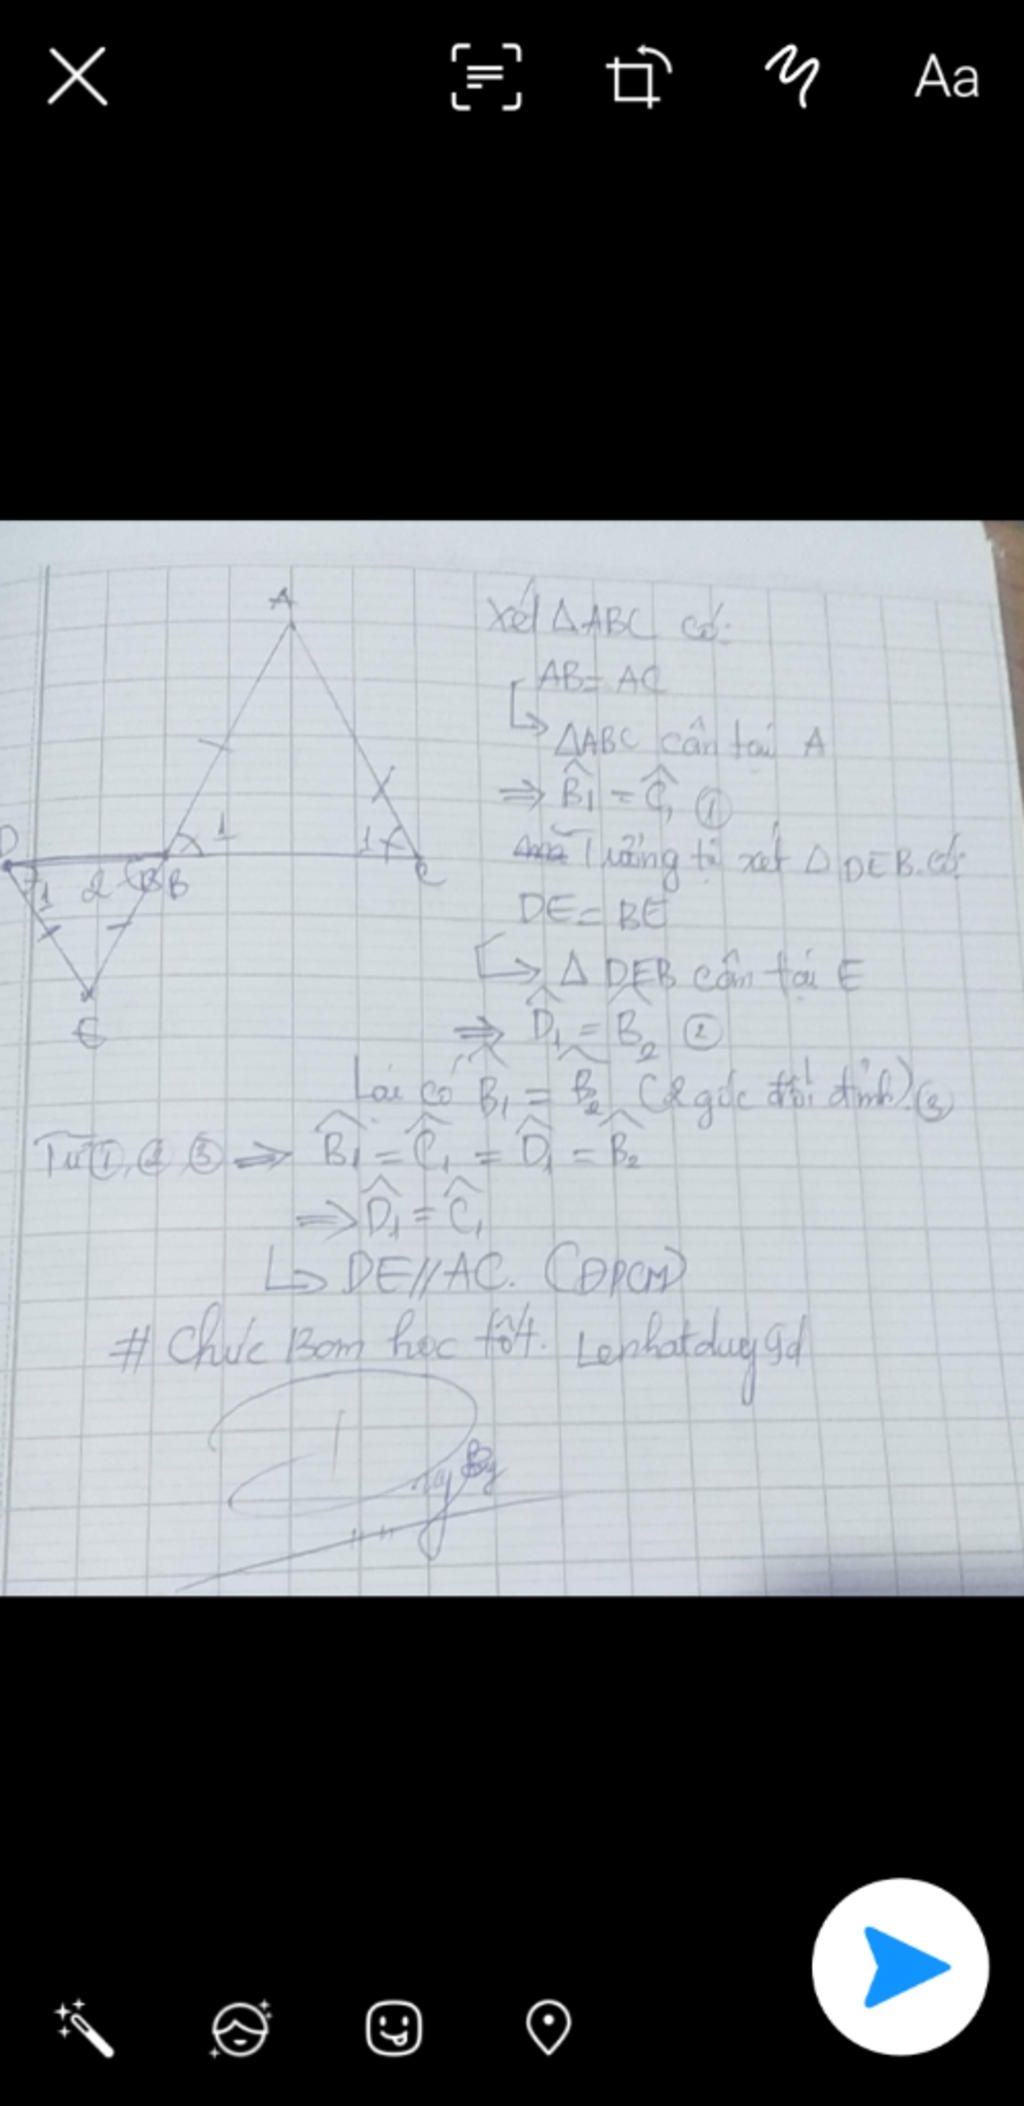 Aa
A
D
1
1
C
1
2
B
B
E
Xét ΔABC có:
AB = AC
↳ ΔABC cân tại A
⇒ B̂₁ = Ĉ₁ ①
Tương tự xét ΔDEB có:
DE = BE
↳ Δ DEB cân tại E
⇒ D̂₁ = B̂₂ ②
Lại có B̂₁ = B̂₂ (2 góc đối đỉnh) ③
Từ ①, ②, ③ ⇒ B̂₁ = Ĉ₁ = D̂₁ = B̂₂
⇒ D̂₁ = Ĉ₁
↳ DE // AC. (ĐPCM)
# Chúc Bom học tốt. Lephatduy9d